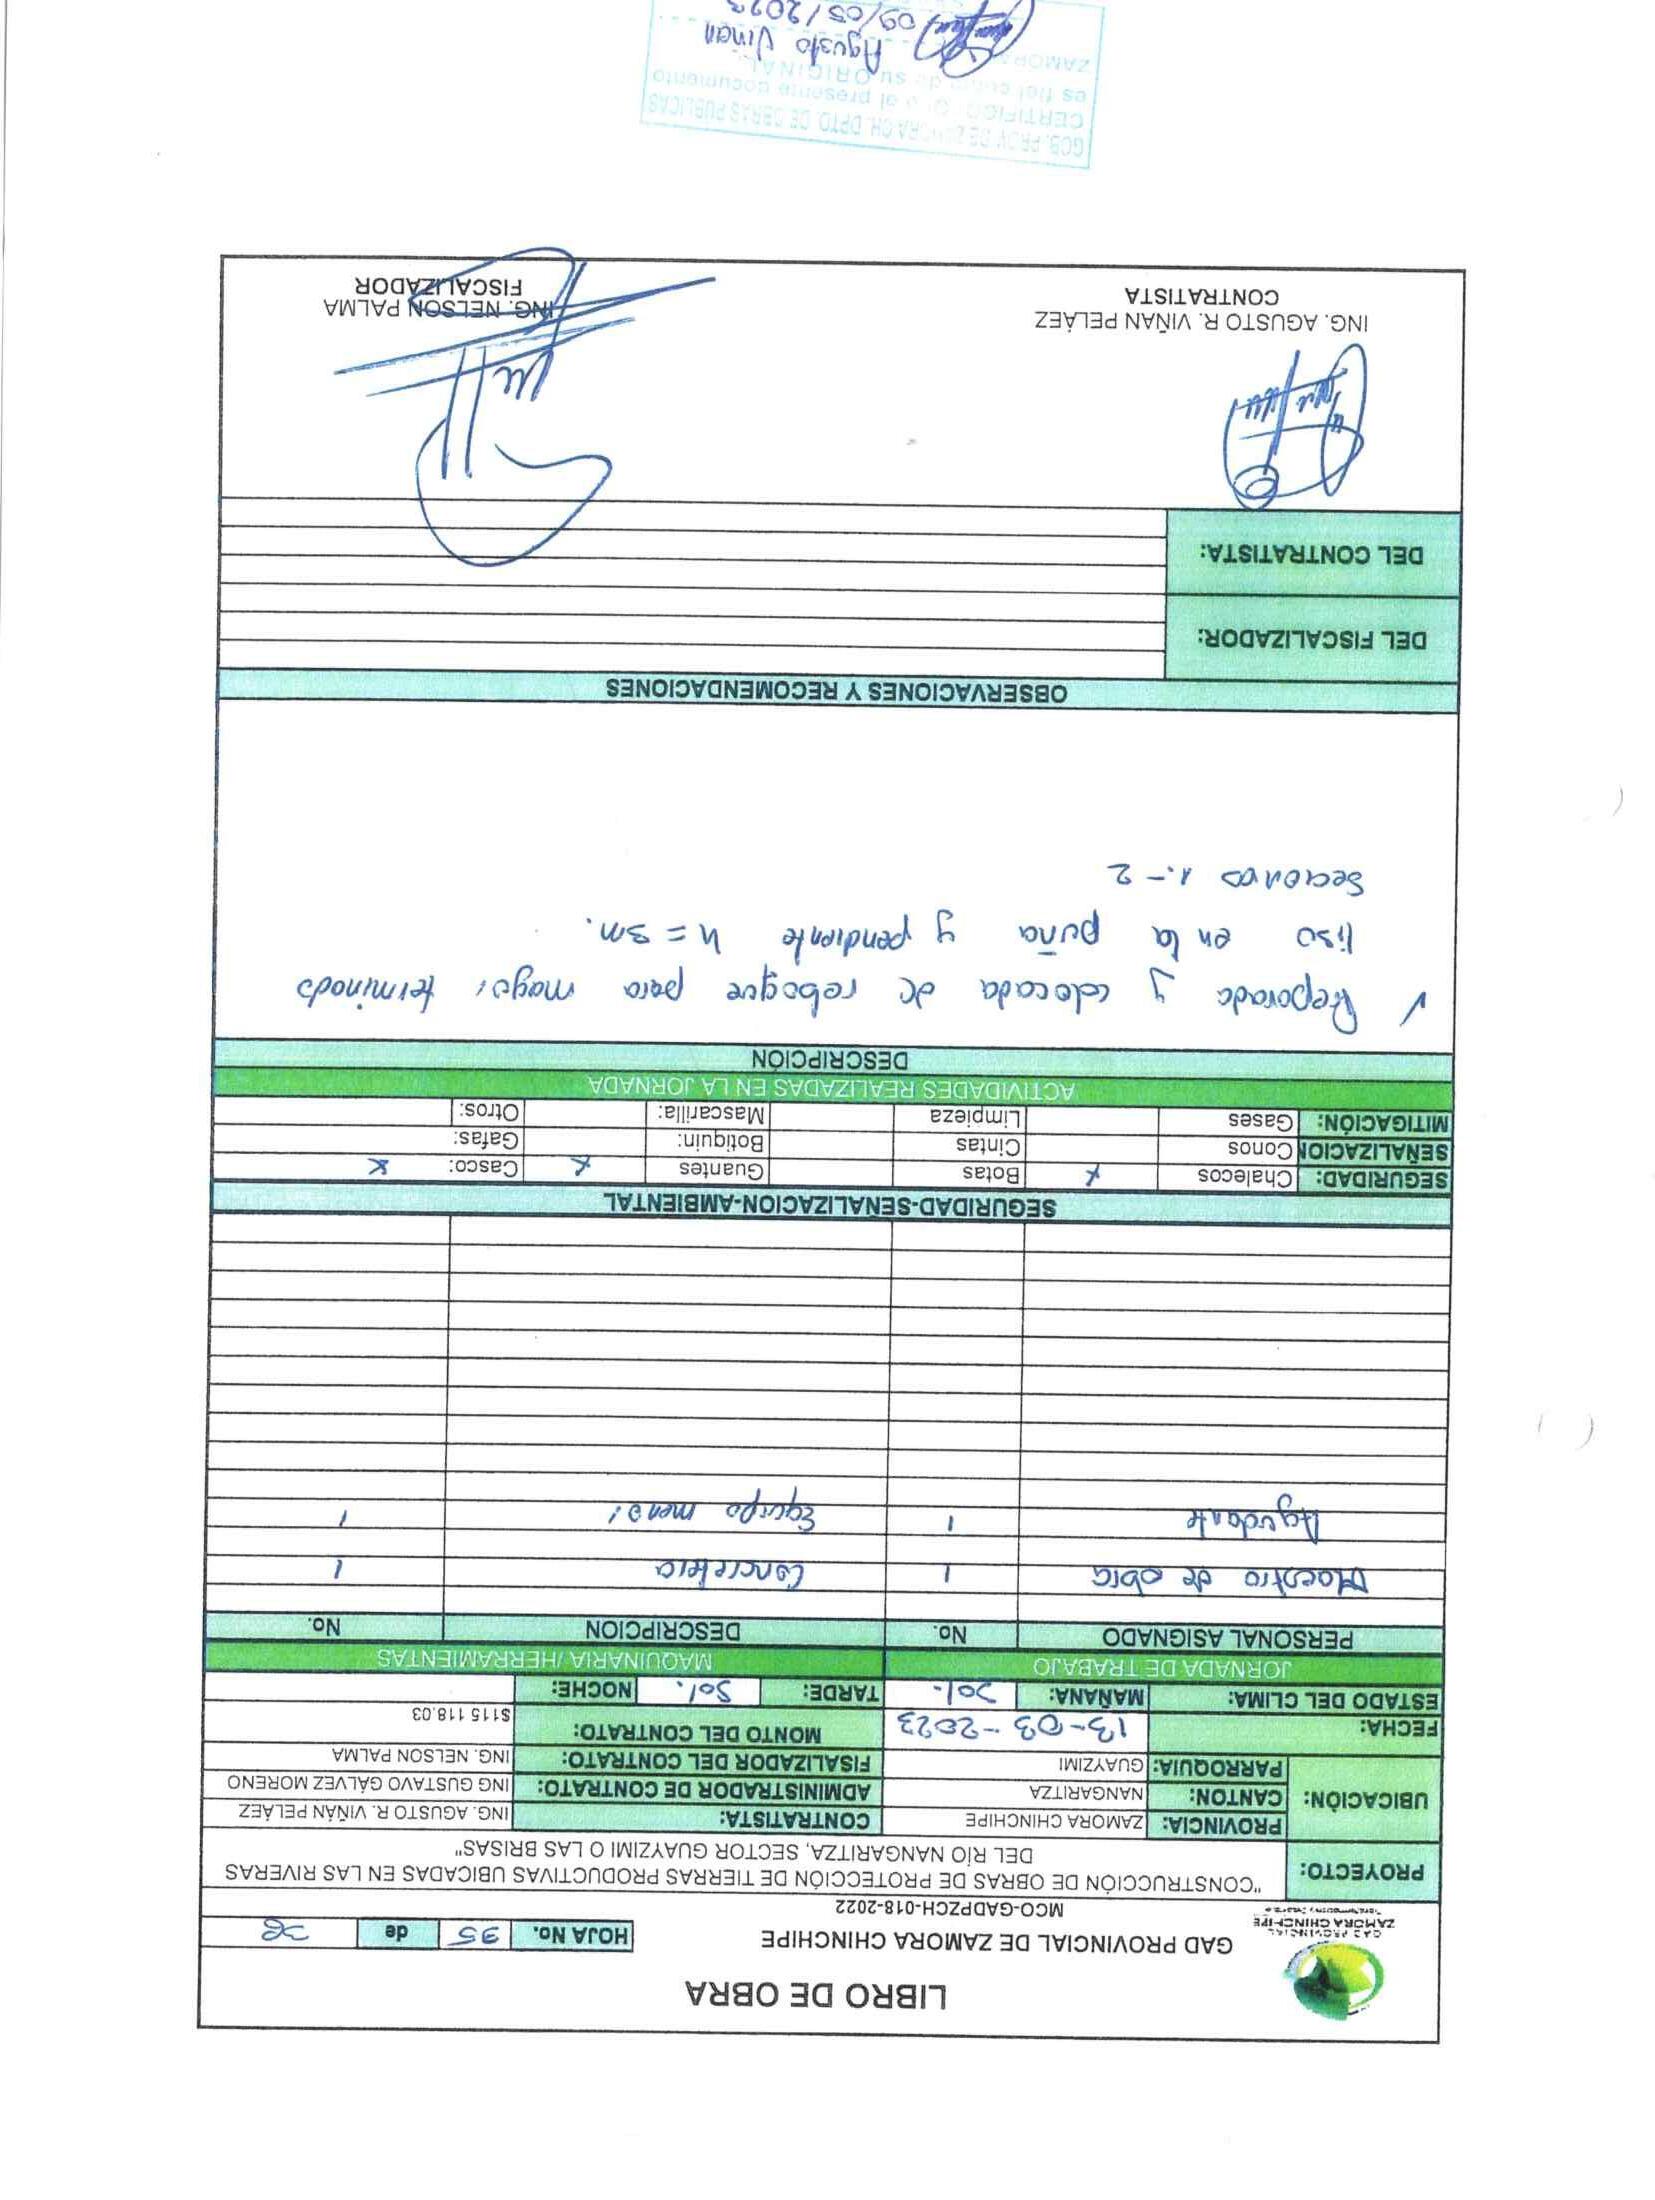 LIBRO DE OBRA
GAD PROVINCIAL
ZAMORA CHINCHIPE
GAD PROVINCIAL DE ZAMORA CHINCHIPE
HOJA No. 35 de 38
MCO-GADPZCH-018-2022
PROYECTO: "CONSTRUCCIÓN DE OBRAS DE PROTECCIÓN DE TIERRAS PRODUCTIVAS UBICADAS EN LAS RIVERAS
DEL RÍO NANGARITZA, SECTOR GUAYZIMI O LAS BRISAS"
UBICACIÓN: PROVINCIA: ZAMORA CHINCHIPE CONTRATISTA: ING. AGUSTO R. VIÑÁN PELÁEZ
CANTON: NANGARITZA ADMINISTRADOR DE CONTRATO: ING GUSTAVO GÁLVEZ MORENO
PARROQUIA: GUAYZIMI FISALIZADOR DEL CONTRATO: ING. NELSON PALMA
FECHA: 13-03-2023 MONTO DEL CONTRATO: $115 118.03
ESTADO DEL CLIMA: MAÑANA: Sol. TARDE: Sol. NOCHE:
JORNADA DE TRABAJO MAQUINARIA /HERRAMIENTAS
PERSONAL ASIGNADO No. DESCRIPCION No.
Maestro de obra 1 Concretera 1
Ayudante 1 Equipo menor 1
SEGURIDAD-SENALIZACION-AMBIENTAL
SEGURIDAD: Chalecos x Botas Guantes x Casco: x
SEÑALIZACION Conos Cintas Botiquin: Gafas:
MITIGACIÓN: Gases Limpieza Mascarilla: Otros:
ACTIVIDADES REALIZADAS EN LA JORNADA
DESCRIPCIÓN
✓ Preparada y colocada de reboque para mayor terminado
liso en la puña y pendiente h = 3m.
Secciones 1.- 2
OBSERVACIONES Y RECOMENDACIONES
DEL FISCALIZADOR:
DEL CONTRATISTA:
ING. AGUSTO R. VIÑAN PELÁEZ ING. NELSON PALMA
CONTRATISTA FISCALIZADOR
GOB. PROV. DE ZAMORA CH. DPTO. DE OBRAS PUBLICAS
CERTIFICO: Que el presente documento
es fiel copia de su ORIGINAL
ZAMORA
Agusto Viñan
09/05/2023